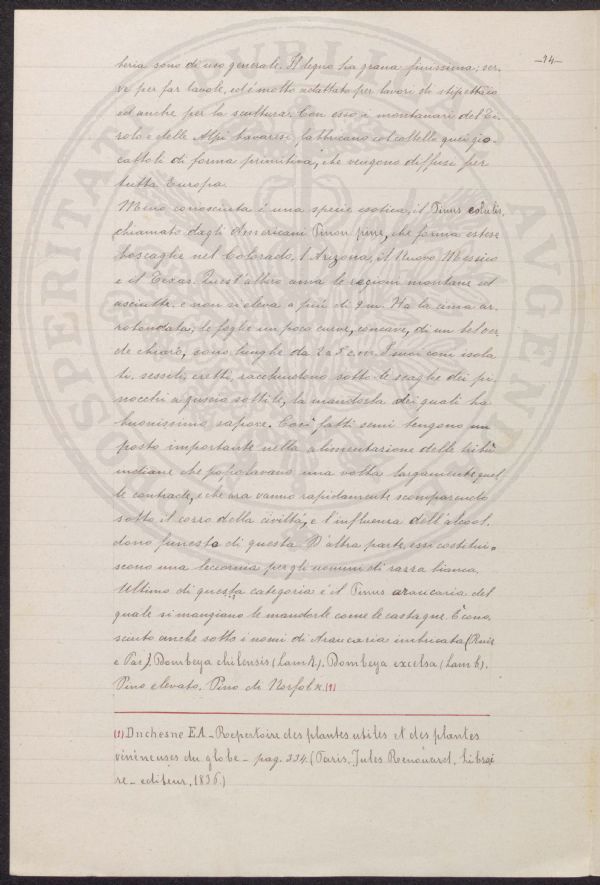 -14-
beria sono di uso generale. Il legno ha grana finissima; ser-
ve per far tavole, ed é molto adattato per lavori di stipettaio
ed anche per la scultura. Con esso i montanari del Ti-
rolo e delle Alpi bavaresi, fabbricano col coltello quei gio-
cattoli di forma primitiva, che vengono diffusi per
tutta Europa.
Meno conosciuta é una specie esotica, il Pinus edulis,
chiamato dagli Americani Pinon pine, che forma estese
boscaglie nel Colorado, l'Arizona, il Nuovo Messico
e il Texas. Quest'albero ama le regioni montane ed
asciutte, e non si eleva a più di 9 m. Ha la cima ar-
rotondata; le foglie un poco curve, concave, di un bel ver-
de chiaro, sono lunghe da 2 a 5 c.m. I suoi coni isola
ti, sessili, eretti, racchiudono sotto le scaglie dei pi-
nocchi a guscio sottile, la mandorla dei quali ha
buonissimo sapore. Così fatti semi tengono un
posto importante nella alimentazione delle tribù
indiane che popolavano una volta largamente quel
le contrade, e che ora vanno rapidamente scomparendo
sotto il corso della civiltá, e l'influenza dell'alcool,
dono funesto di questa. D'altra parte essi costitui-
scono una leccornia per gli uomini di razza bianca.
Ultimo di questa categoria é il Pinus araucaria del
quale si mangiano le mandorle come le castagne. É cono
sciuto anche sotto i nomi di Araucaria imbricata (Ruiz
e Pav). Dombeya chilensis (Lamk). Dombeya excelsa (Lamb).
Pino elevato. Pino di Norfolk (1)
(1) Duchesne E.A. - Repertoire des plantes utiles et des plantes
vénéneuses du globe - pag. 334. (Paris, Jules Renouard, Librai
re - editeur, 1836.)
PROSPERITATI PVBLICAE AVGENDAE